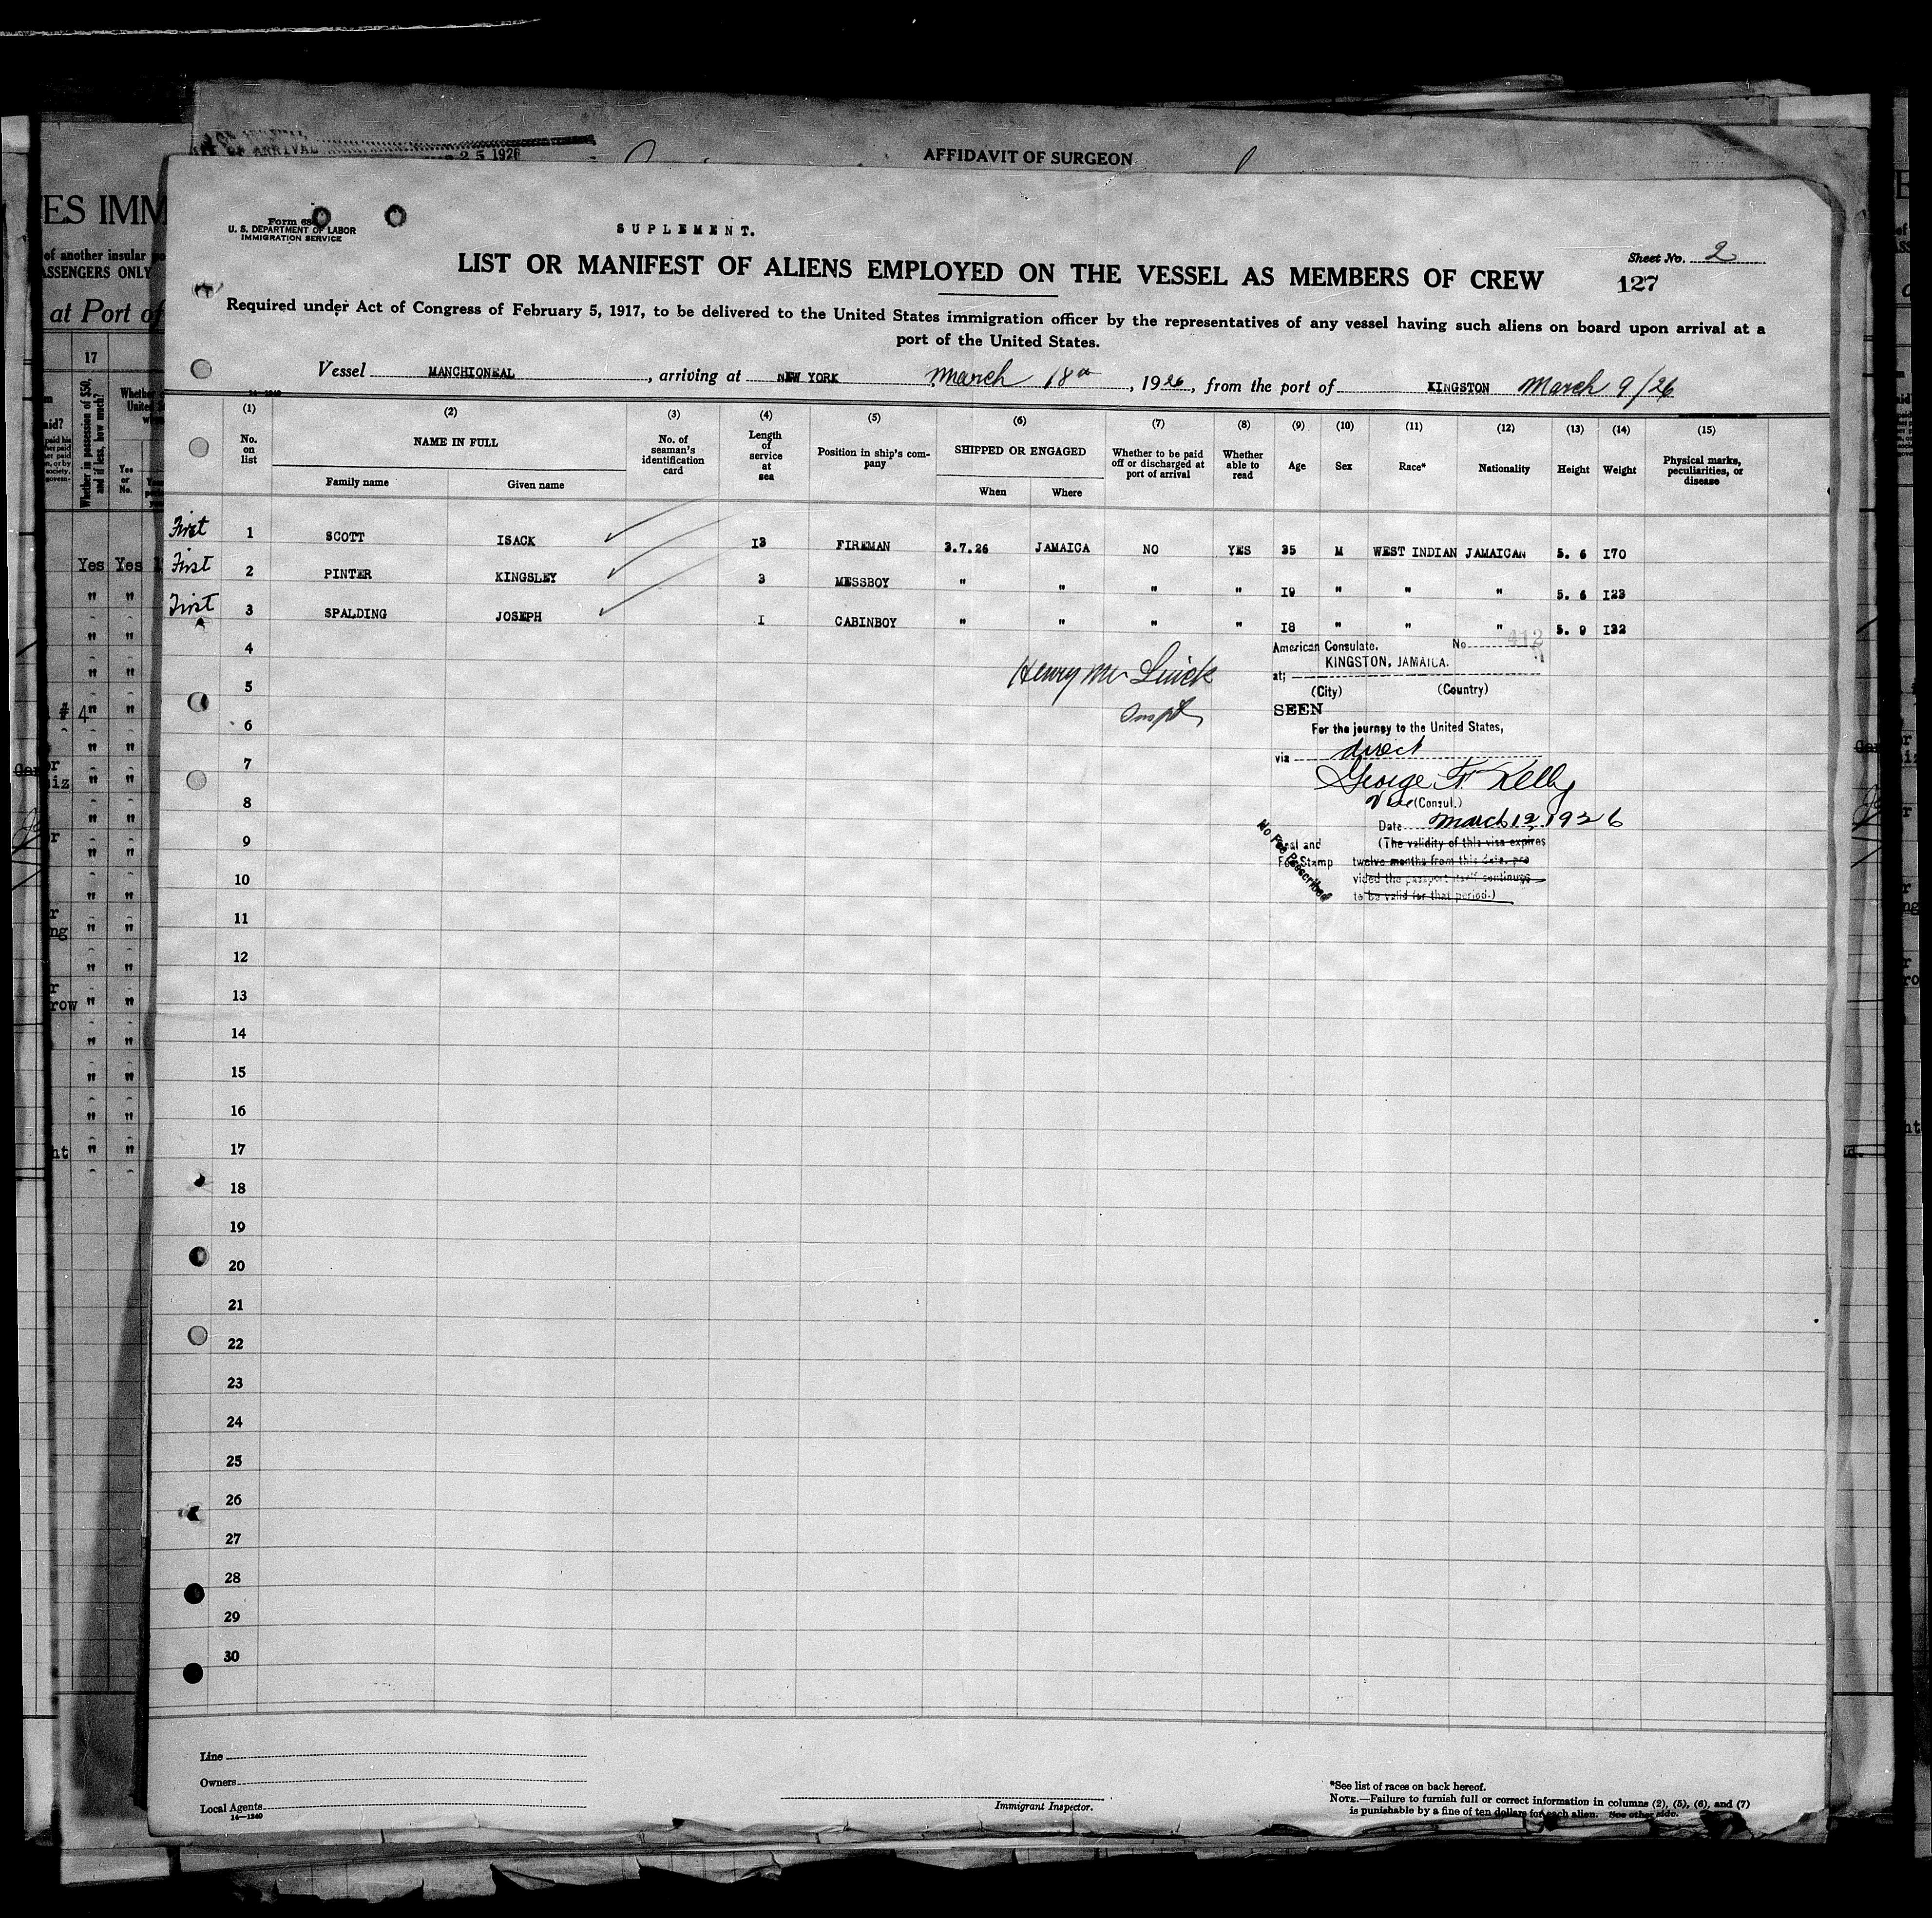 OF ARRIVAL 25 1926
AFFIDAVIT OF SURGEON
ES IMM
of another insular
ASSENGERS ONLY
at Port of
17
Whether in possession of $50, and if less, how much?
Yes or No.
Yes Yes
Form 680
U. S. DEPARTMENT OF LABOR
IMMIGRATION SERVICE
SUPLEMENT.
Sheet No. 2
LIST OR MANIFEST OF ALIENS EMPLOYED ON THE VESSEL AS MEMBERS OF CREW
127
Required under Act of Congress of February 5, 1917, to be delivered to the United States immigration officer by the representatives of any vessel having such aliens on board upon arrival at a
port of the United States.
Vessel MANCHIONEAL, arriving at NEW YORK March 18th, 1926, from the port of KINGSTON March 9/26
14-1240
(1) (2) (3) (4) (5) (6) (7) (8) (9) (10) (11) (12) (13) (14) (15)
No. on list
NAME IN FULL
Family name Given name
No. of seaman's identification card
Length of service at sea
Position in ship's company
SHIPPED OR ENGAGED
When Where
Whether to be paid off or discharged at port of arrival
Whether able to read
Age Sex Race* Nationality Height Weight
Physical marks, peculiarities, or disease
First 1 SCOTT ISACK 13 FIREMAN 3.7.26 JAMAICA NO YES 35 M WEST INDIAN JAMAICAN 5. 6 170
First 2 PINTER KINGSLEY 3 MESSBOY " " " " 19 " " " 5. 6 123
First 3 SPALDING JOSEPH I CABINBOY " " " " 18 " " " 5. 9 132
4
5
6
7
8
9
10
11
12
13
14
15
16
17
18
19
20
21
22
23
24
25
26
27
28
29
30
Henry Mc
Inspt
American Consulate. No. 412
KINGSTON, JAMAICA.
at;
(City) (Country)
SEEN
For the journey to the United States,
via direct
George F. Kelly
Vice (Consul.)
Date March 12, 1926
(The validity of this visa expires
twelve months from this date, pro
vided the passport itself continues
to be valid for that period.)
Seal and
Fee Stamp
No Fee Prescribed
Line
Owners
Local Agents
14-1240
Immigrant Inspector.
*See list of races on back hereof.
NOTE.—Failure to furnish full or correct information in columns (2), (5), (6), and (7)
is punishable by a fine of ten dollars for each alien. See other side.